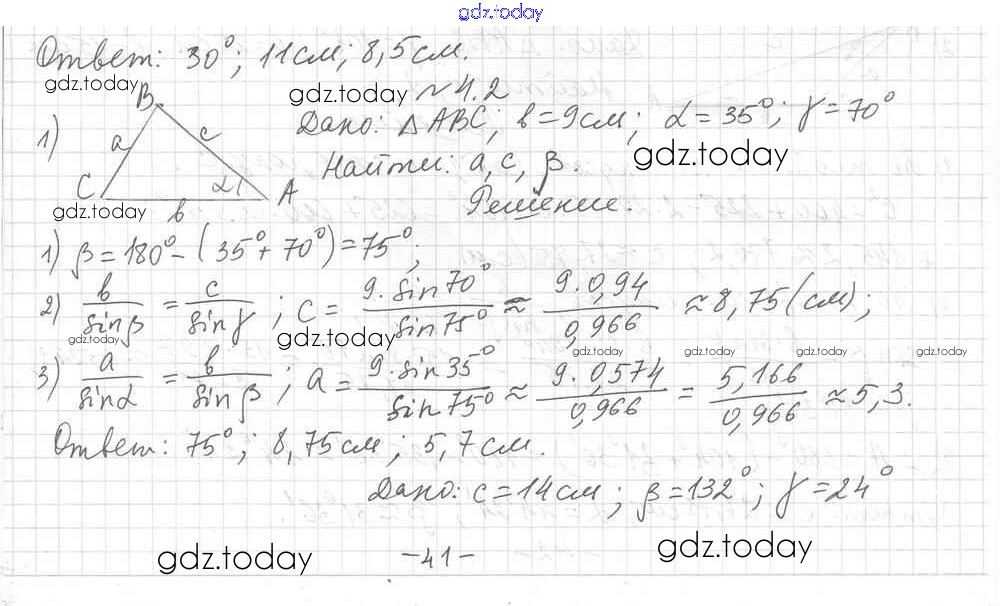 gdz.today
Ответ: 30°; 11см; 8,5см.
gdz.today
gdz.today №4.2
1) B a c C b α A
Дано: △ABC; b=9см; α=35°; γ=70°
Найти: a, c, β.
gdz.today
gdz.today
Решение.
1) β=180°-(35°+70°)=75°;
2) b/sinβ = c/sinγ; c= 9·sin70°/sin75° ≈ 9·0,94/0,966 ≈ 8,75(см);
gdz.today
gdz.today gdz.today gdz.today gdz.today gdz.today
3) a/sinα = b/sinβ; a= 9·sin35°/sin75° ≈ 9·0,574/0,966 = 5,166/0,966 ≈ 5,3.
Ответ: 75°; 8,75см; 5,7см.
Дано: c=14см; β=132°; γ=24°
gdz.today -41- gdz.today